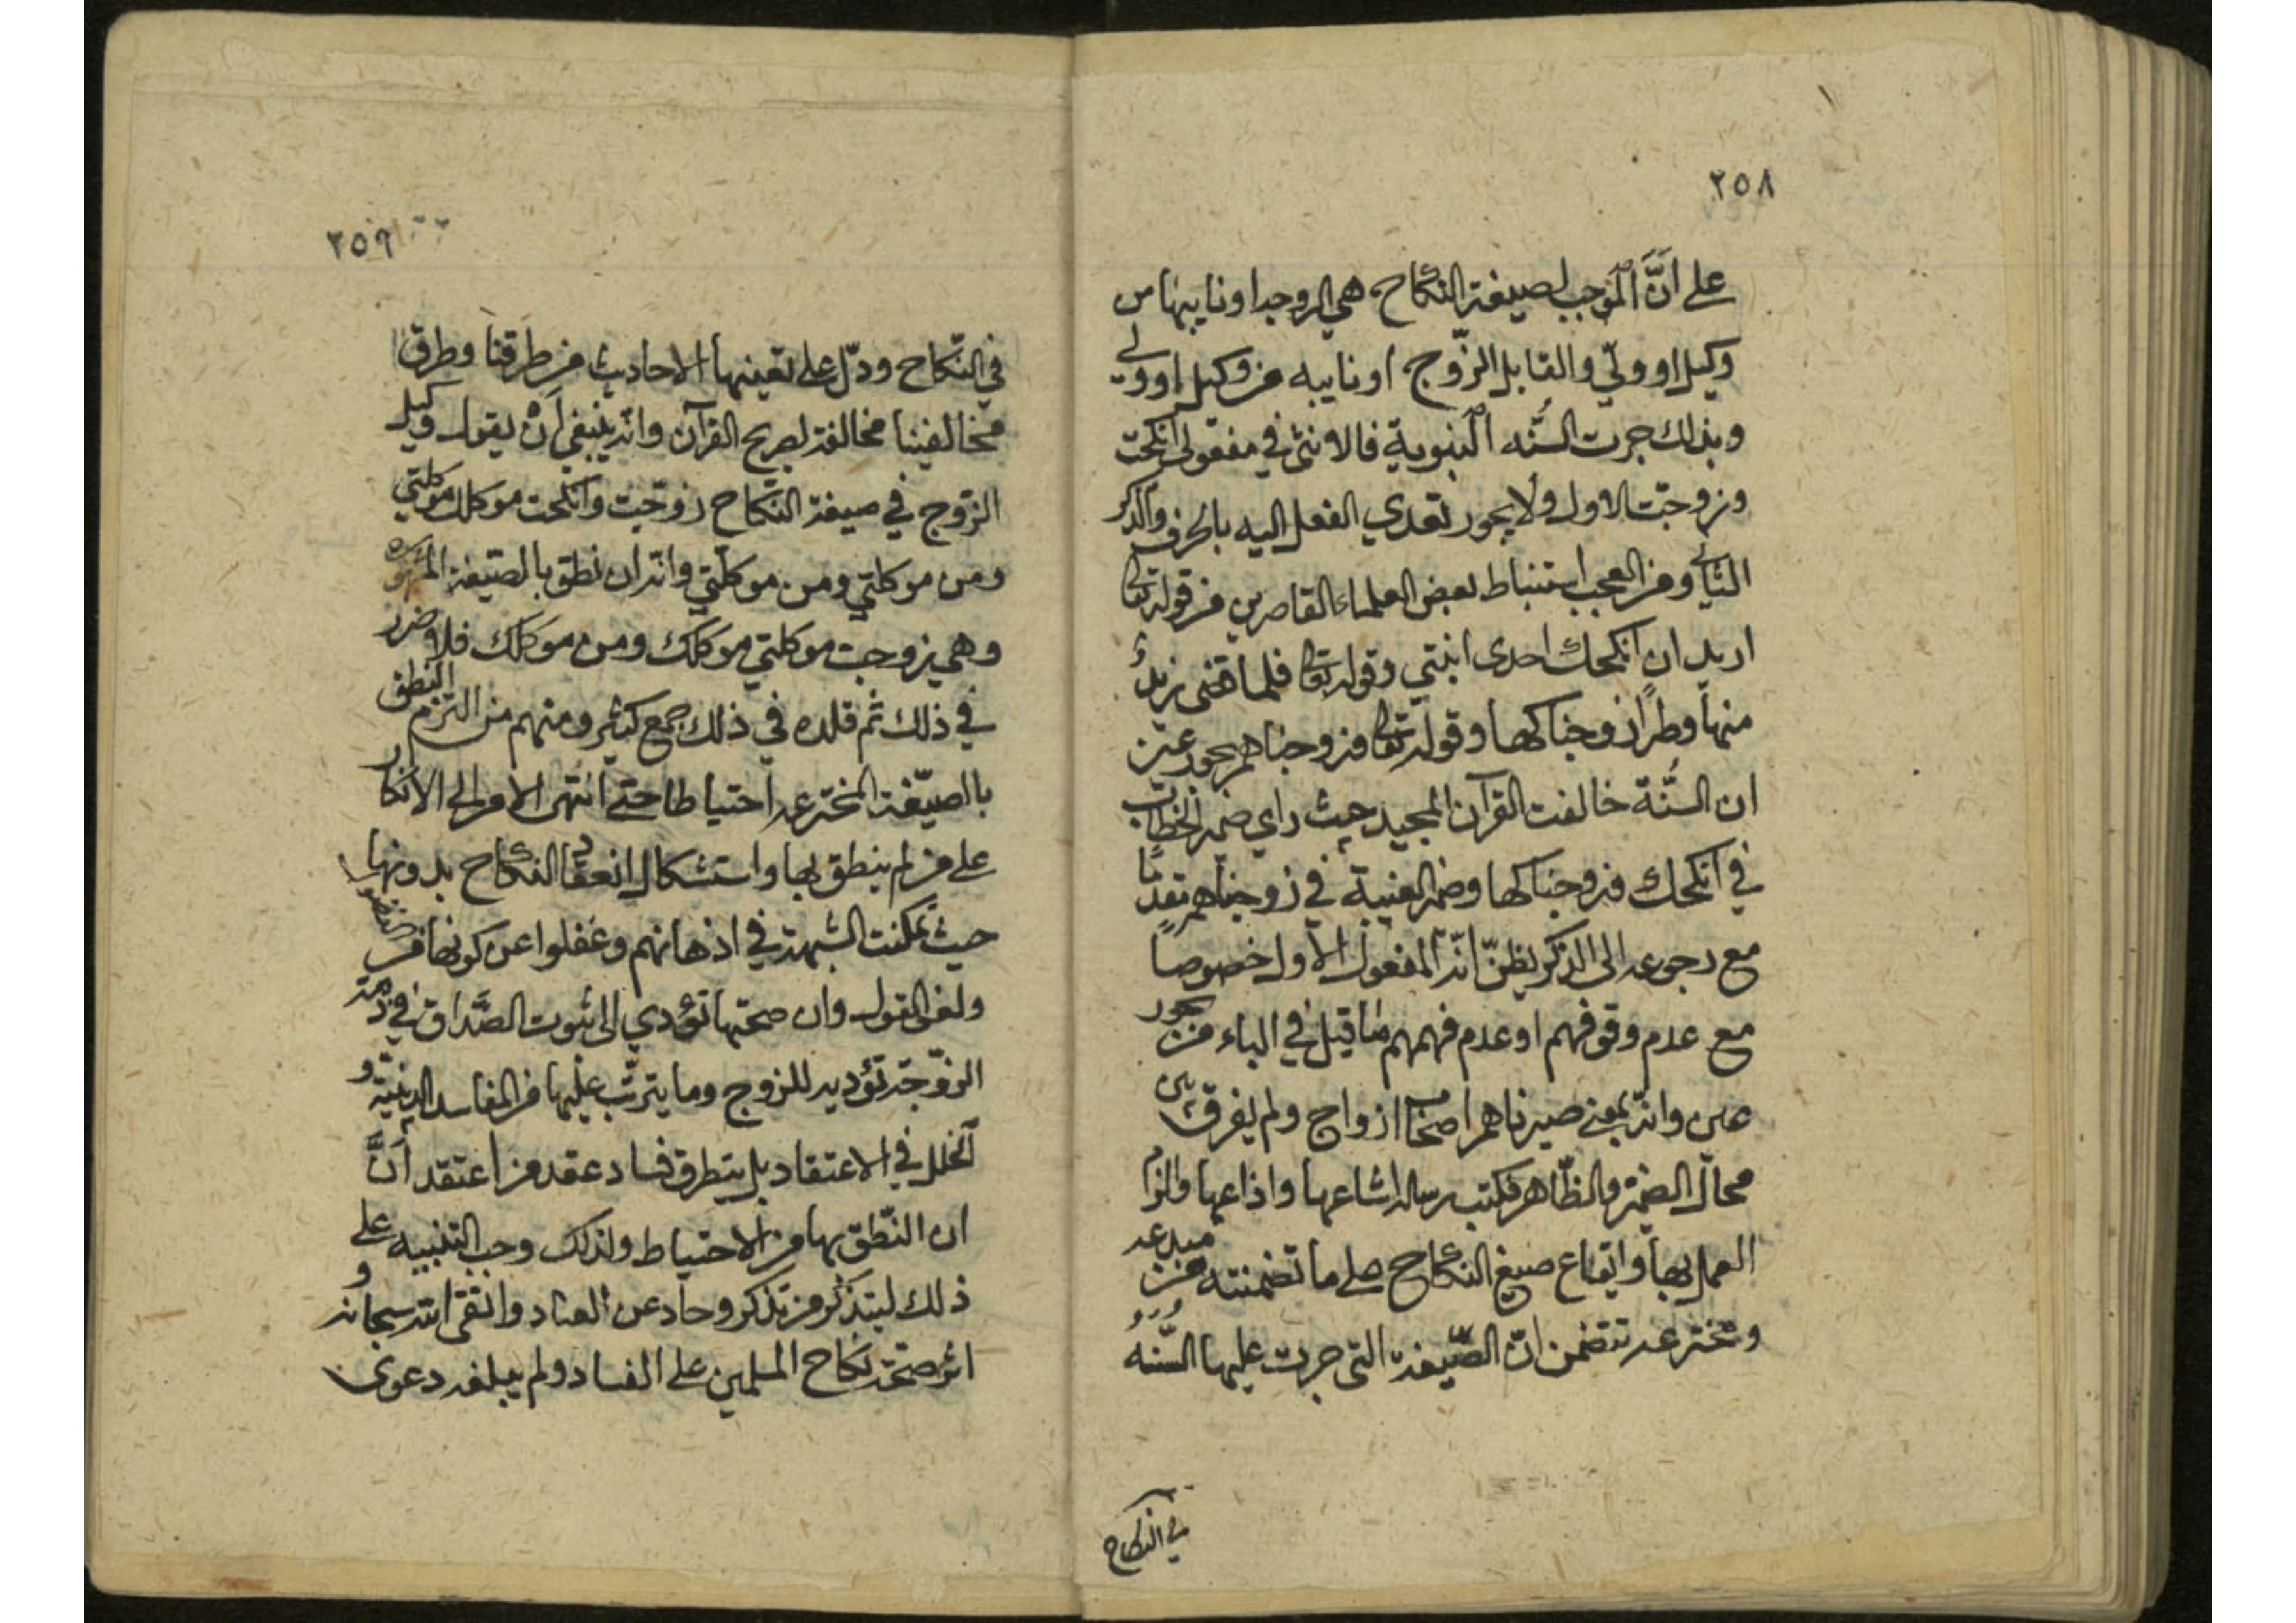 ٢٥٨
على انَّ الموجب لصيغة النكاح هي الزوجه او نايبها من
وكيل او ولّي والقابل الزّوج او نايبه من وكيل او ولي
وبذلك جرت السُّنه النبوية فالاونثى في مفعولي انكحت
وزوجت الاول ولا يجوز تعدي الفعل اليه بالحرف والذكر
الثاني ومن العجب استنباط بعض العلماء القاصرين من قوله تعالى
اريد ان انكحك احدى ابنتي وقوله تعالى فلما قضى زيدٌ
منها وطرًا زوجناكها وقوله تعالى وزوجناهم بحور عين
ان السُّنة خالفت القرآن المجيد حيث راي ضمير الخطاب
في انكحك وزوجناكها وضمير الغيبة في زوجناهم تقدمًا
مع رجوعه الى الذكر يظنّ انّه المفعول الاول خصوصاً
مع عدم وقوفهم او عدم فهمهم لما قيل في الباء من بحور
عين وانه بمعنى صيرناهم اصحاب ازواج ولم يفرق بين
محالّ الضمير والظّاهر فكتب رساله اشاعها واذاعها والزام
العمل بها وايقاع صيغ النكاح على ما تضمنته من مبدعه
ومخترعه تتضمن انّ الصّيغة التى جرت عليها السُّنّه
في النكاح
٢٥٩
في النّكاح ودّل على تعينها الاحاديث من طرقنا وطرق
مخالفينا مخالفة لصريح القرآن وانه ينبغي انْ يقول وكيل
الزّوج في صيغة النكّاح زوّجت وانكحت موكلك موكلتي
ومن موكلتي ومن موكلّتي وانه ان نطق بالصّيغة
وهي زوجت موكلتي موكلك ومن موكلك فلا ضرر
في ذلك ثم قلده في ذلك جمع كثير ومنهم من التزم النطق
بالصيّغة المخترعه احتياطا حتى انتهى الامر الى الانكار
على من لم ينطق بها واستشكال انعقاد النكاح بدونها
حيث تمكنت الشبهة في اذهانهم وغفلوا عن كونها من
ولغى القول وان صحتها تؤدي الى ثبوت الصَّداق في ذمة
الزوّجة تؤديه للزوج وما يترتّب عليها من المفاسد الدينيّة و
الخلل في الاعتقاد بل يتطرق فساد عقد من اعتقد انَّ
ان النّطق بها من الاحتياط ولذلك وجب التنبيه على
ذلك ليتذكر من تذكر وحاد عن العناد واتقى الله سبحانه و
اثر صحّة نكاح المسلمين على الفساد ولم يبلغه دعوى